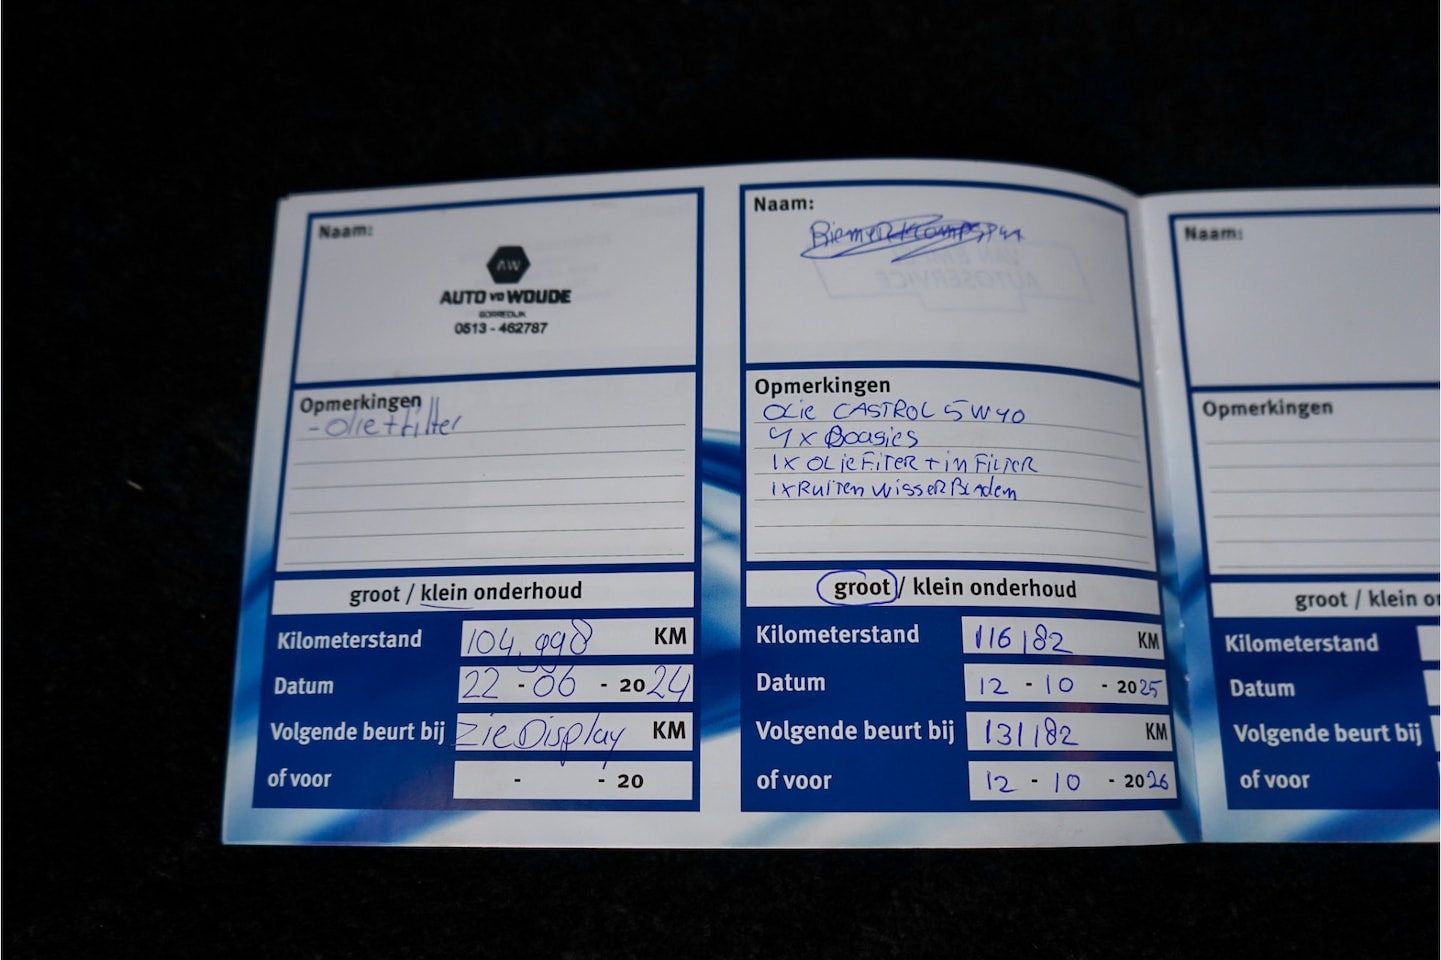 Naam:
AW
AUTO VD WOUDE
GORREDIJK
0513 - 462787
Opmerkingen
- Olie + Filter
groot / klein onderhoud
Kilometerstand 104.998 KM
Datum 22 - 06 - 2024
Volgende beurt bij Zie Display KM
of voor - - 20
Naam:
Opmerkingen
OLie CASTROL 5W40
4x Bougies
1x OLieFiTER + in FiLTER
1x RuiTen wisser Bladen
groot / klein onderhoud
Kilometerstand 116182 KM
Datum 12 - 10 - 2025
Volgende beurt bij 131182 KM
of voor 12 - 10 - 2026
Naam:
Opmerkingen
groot / klein o
Kilometerstand
Datum
Volgende beurt bij
of voor